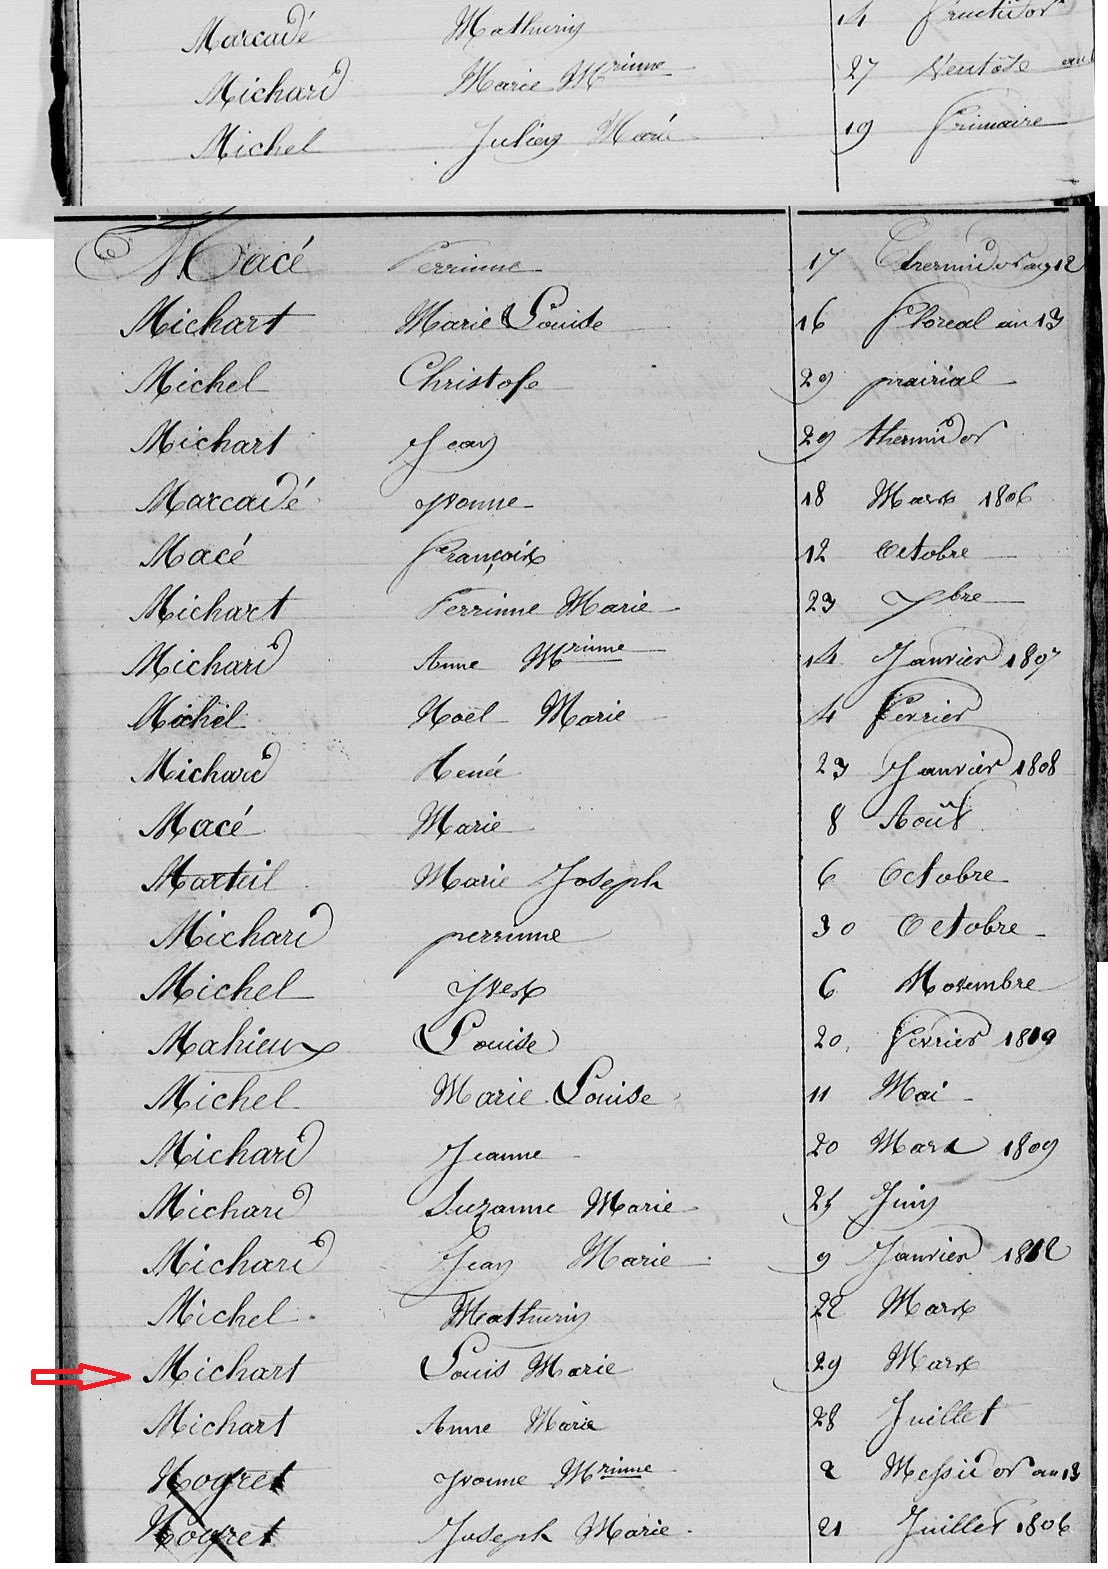 Marcadé Mathurin 14 fructidor
Michard Marie Mrinne 27 Ventôse an
Michel Julien Marie 19 frimaire
Macé Perrinne 17 thermidor an 12
Michart Marie Louise 16 floreal an 13
Michel Christofe 29 prairial
Michart Jean 29 thermidor
Marcadé yvonne 18 Mars 1806
Macé françois 12 octobre
Michart Perrinne Marie 23 7bre
Michard Anne Mrinne 14 Janvier 1807
Michel Noël Marie 4 fevrier
Michard Renée 23 Janvier 1808
Macé Marie 8 Août
Marteil Marie Joseph 6 Octobre
Michard perrinne 30 Octobre
Michel yves 6 Novembre
Mahieux Louise 20 fevrier 1819
Michel Marie Louise 11 Mai
Michard Jeanne 20 Mars 1809
Michard Suzanne Marie 25 Juin
Michard Jean Marie 9 Janvier 1812
Michel Mathurin 22 Mars
Michart Louis Marie 29 Mars
Michart Anne Marie 28 Juillet
Nogret yvonne Mrinne 2 Messidor an 13
Nogret Joseph Marie 21 Juillet 1806